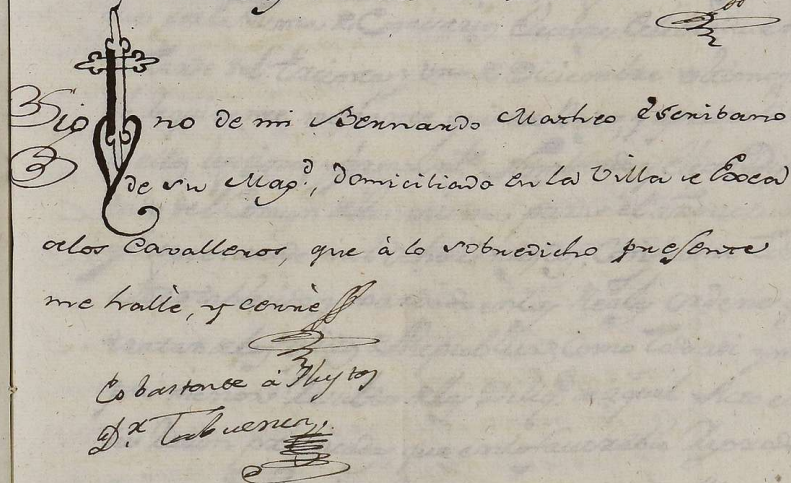 Sig no de mi Bernardo Matheo Escribano
de su Mag.d, domiciliado en la Villa de Exea
delos Cavalleros, que à lo sobredicho presente
me hallè, y cerrè
bastante